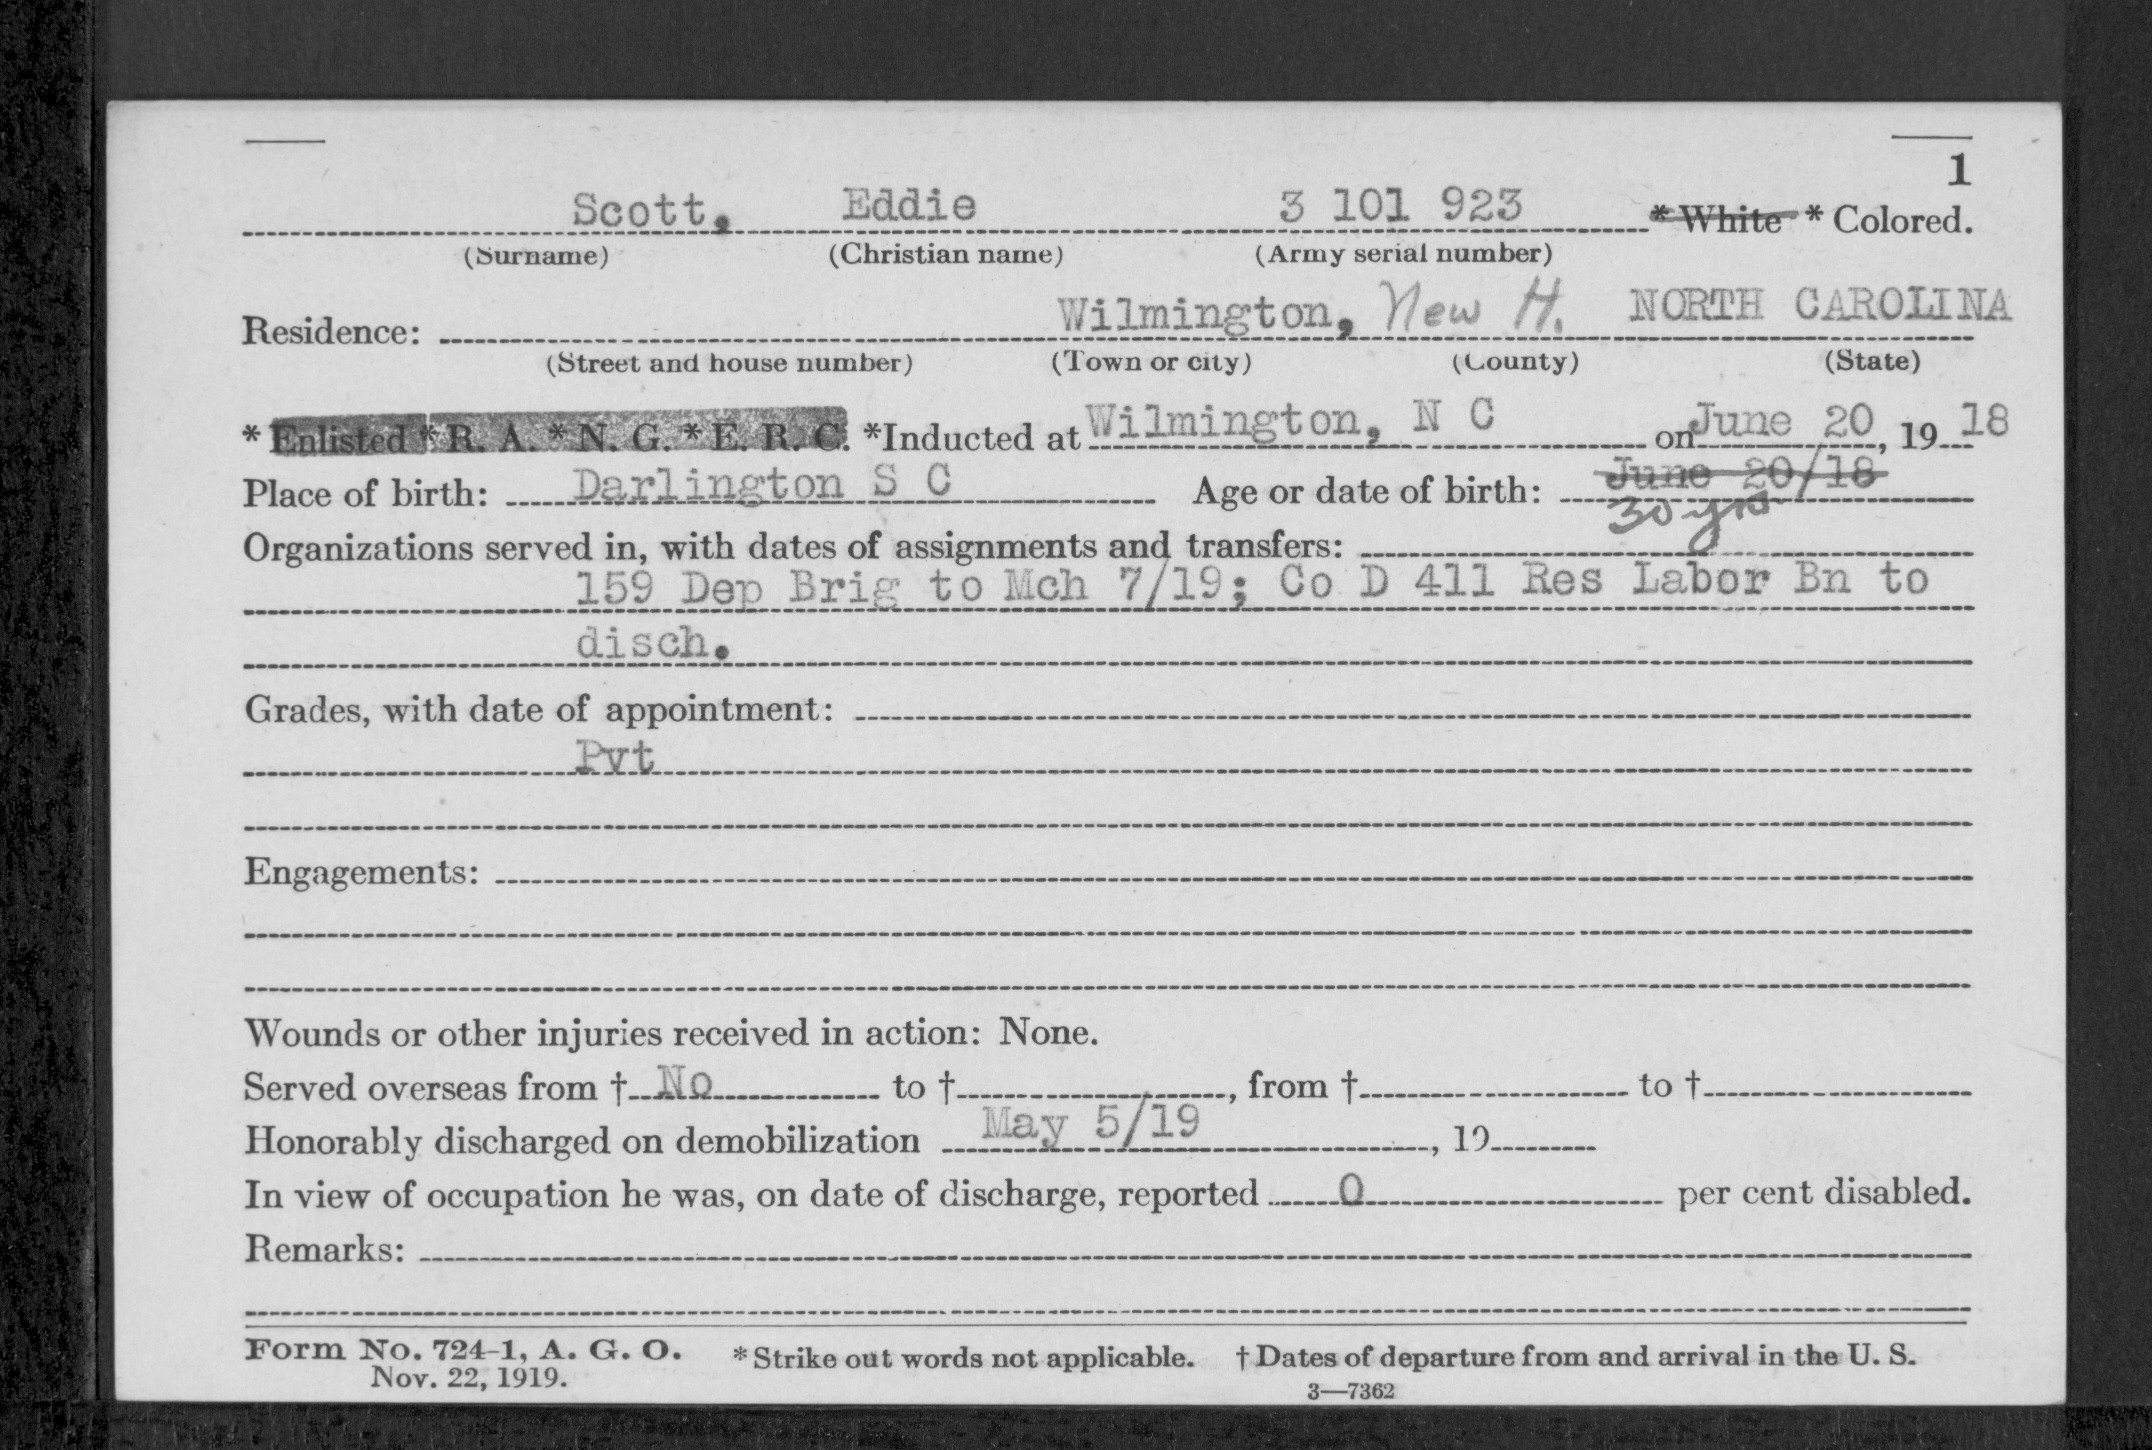 1
Scott, Eddie 3 101 923 * White * Colored.
(Surname) (Christian name) (Army serial number)
Residence: Wilmington, New H. NORTH CAROLINA
(Street and house number) (Town or city) (County) (State)
* Enlisted * R. A. * N. G. * E. R. C. *Inducted at Wilmington, N C on June 20, 19 18
Place of birth: Darlington S C Age or date of birth: June 20/18
30 yrs
Organizations served in, with dates of assignments and transfers:
159 Dep Brig to Mch 7/19; Co D 411 Res Labor Bn to
disch.
Grades, with date of appointment:
Pvt
Engagements:
Wounds or other injuries received in action: None.
Served overseas from † No to †, from † to †
Honorably discharged on demobilization May 5/19, 19
In view of occupation he was, on date of discharge, reported 0 per cent disabled.
Remarks:
Form No. 724-1, A. G. O. * Strike out words not applicable. † Dates of departure from and arrival in the U. S.
Nov. 22, 1919.
3—7362